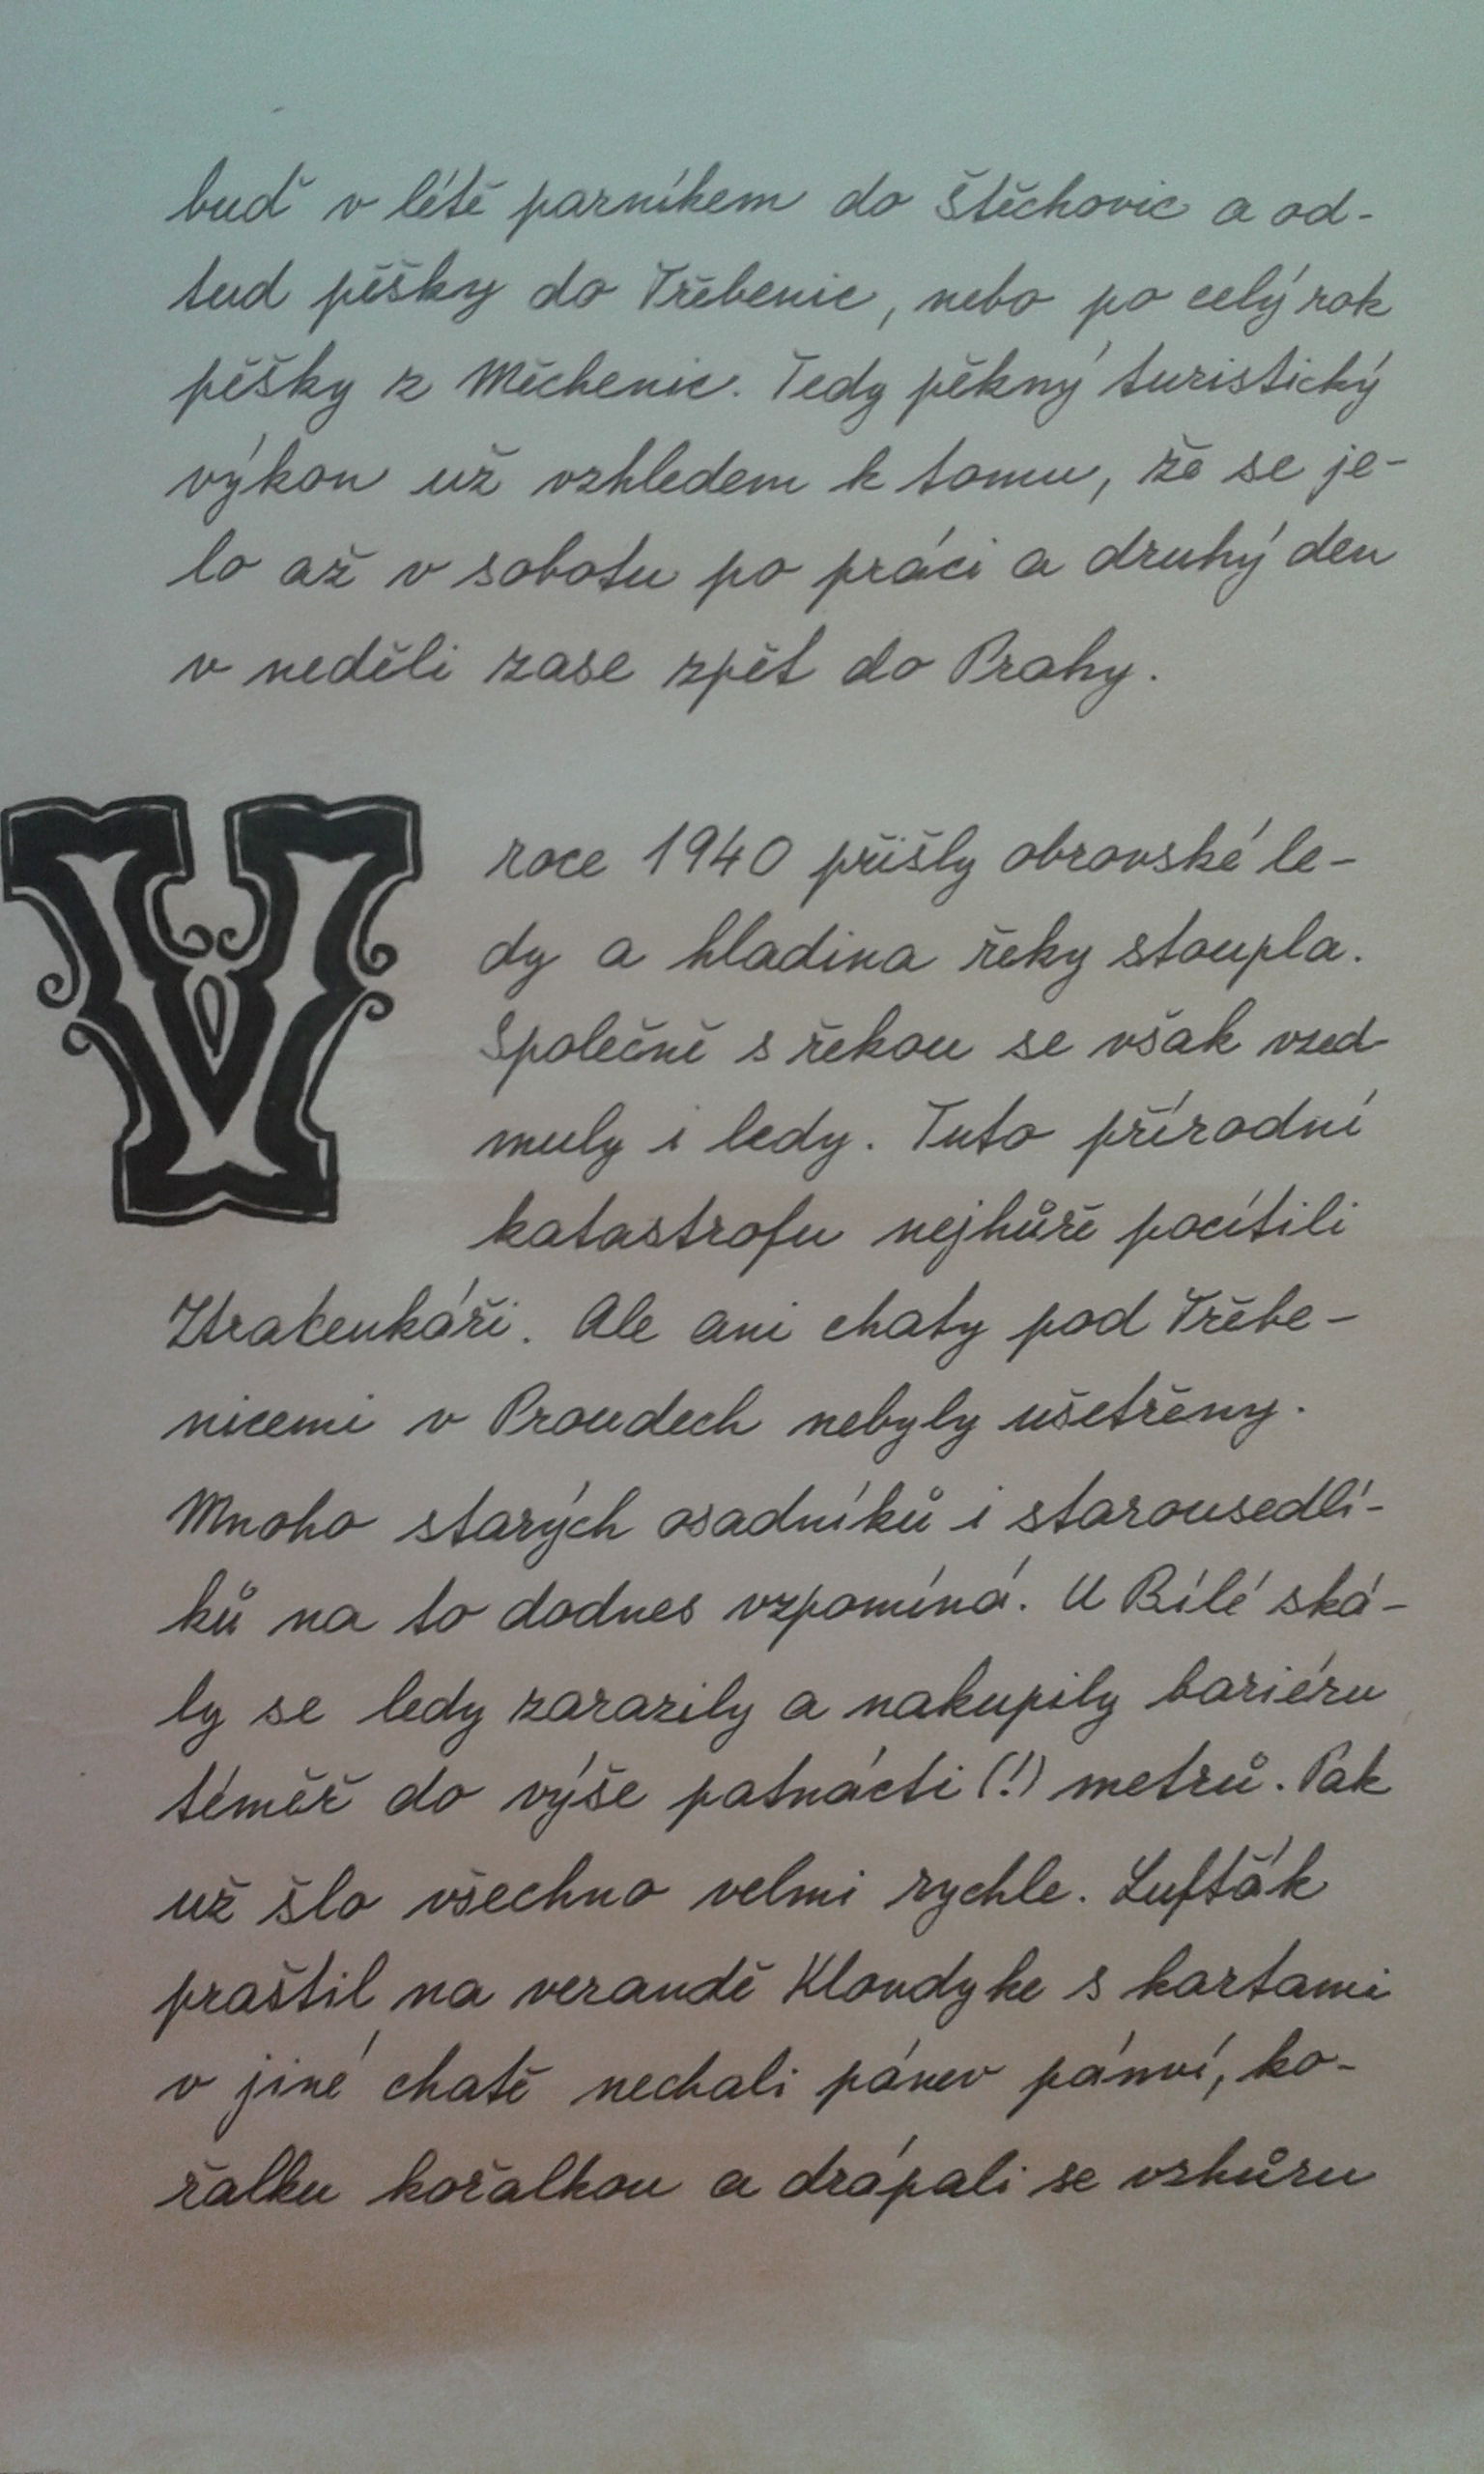 buď v létě parníkem do Štěchovic a od-
tud pěšky do Třebenic, nebo po celý rok
pěšky z Měchenic. Tedy pěkný turistický
výkon už vzhledem k tomu, že se je-
lo až v sobotu po práci a druhý den
v neděli zase zpět do Prahy.
V roce 1940 přišly obrovské le-
dy a hladina řeky stoupla.
Společně s řekou se však vzed-
muly i ledy. Tuto přírodní
katastrofu nejhůře pocítili
Ztracenkáři. Ale ani chaty pod Třebe-
nicemi v Proudech nebyly ušetřeny.
Mnoho starých osadníků i starousedlí-
ků na to dodnes vzpomíná. U Bílé ská-
ly se ledy zarazily a nakupily bariéru
téměř do výše patnácti (!) metrů. Pak
už šlo všechno velmi rychle. Lufťák
praštil na verandě Klondyke s kartami
v jiné chatě nechali pánev pánví, ko-
řalku kořalkou a drápali se vzhůru